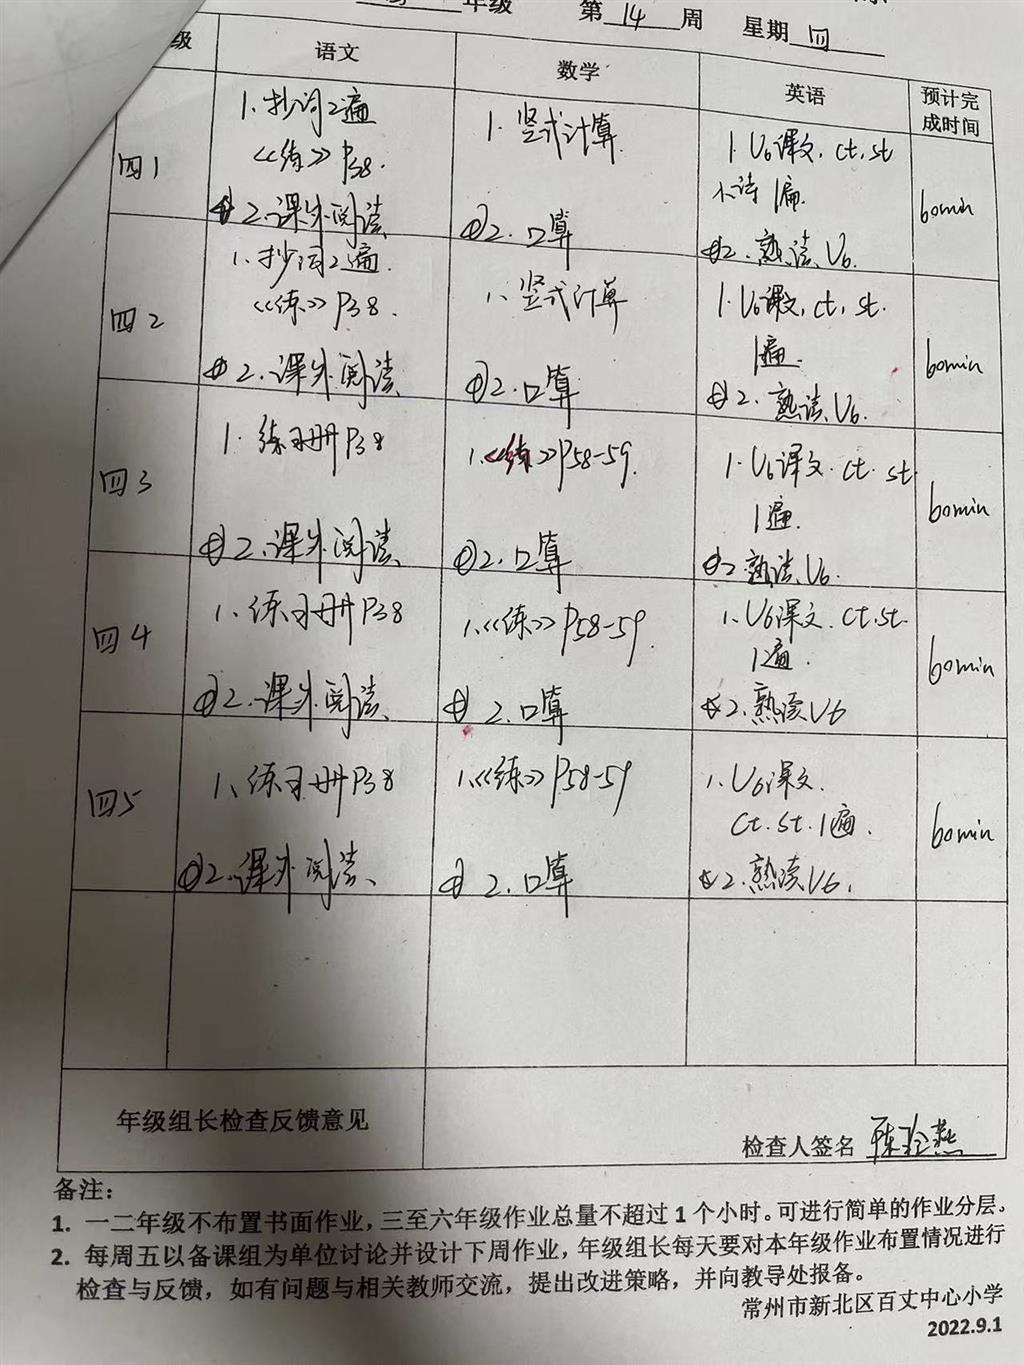 年级 第 14 周 星期 四
级 语文 数学 英语 预计完成时间
四1
1.抄词2遍
《练》P38.
2.课外阅读
1.竖式计算
2.口算
1.U6课文.ct.st
小诗1遍.
2.熟读U6.
60min
四2
1.抄词2遍.
《练》P38.
2.课外阅读
1.竖式计算
2.口算
1.U6课文,ct,st.
1遍.
2.熟读U6.
60min
四3
1.练习册P38
2.课外阅读
1.《练》P58-59.
2.口算
1.U6课文.ct.st
1遍.
2熟读U6.
60min
四4
1.练习册P38
2.课外阅读
1.《练》P58-59.
2.口算
1.U6课文.ct.st.
1遍.
2.熟读U6
60min
四5
1、练习册P38
2.课外阅读
1.《练》P58-59
2.口算
1.U6课文.
ct.st.1遍.
2.熟读U6.
60min
年级组长检查反馈意见
检查人签名
备注：
1. 一二年级不布置书面作业，三至六年级作业总量不超过1个小时。可进行简单的作业分层。
2. 每周五以备课组为单位讨论并设计下周作业，年级组长每天要对本年级作业布置情况进行
检查与反馈，如有问题与相关教师交流，提出改进策略，并向教导处报备。
常州市新北区百丈中心小学
2022.9.1